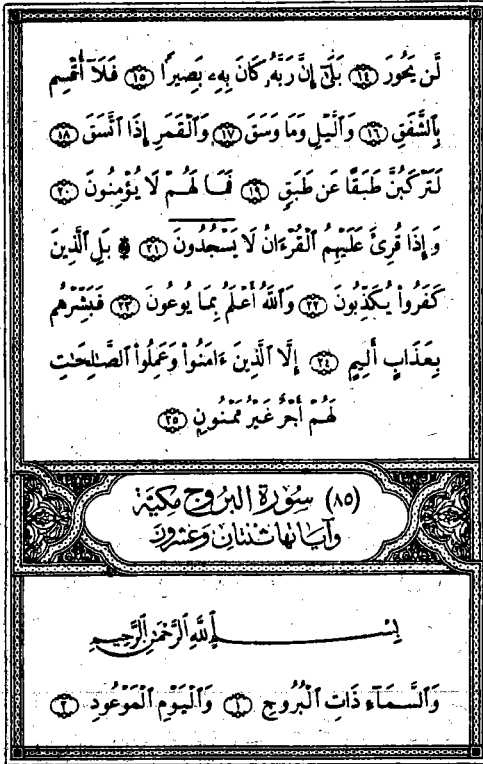 لَّن يَحُورَ ۝١٤ بَلَىٰٓ إِنَّ رَبَّهُۥ كَانَ بِهِۦ بَصِيرًا ۝١٥ فَلَآ أُقْسِمُ
بِٱلشَّفَقِ ۝١٦ وَٱلَّيْلِ وَمَا وَسَقَ ۝١٧ وَٱلْقَمَرِ إِذَا ٱتَّسَقَ ۝١٨
لَتَرْكَبُنَّ طَبَقًا عَن طَبَقٍ ۝١٩ فَمَا لَهُمْ لَا يُؤْمِنُونَ ۝٢٠
وَإِذَا قُرِئَ عَلَيْهِمُ ٱلْقُرْءَانُ لَا يَسْجُدُونَ ۝٢١ ۩ بَلِ ٱلَّذِينَ
كَفَرُوا۟ يُكَذِّبُونَ ۝٢٢ وَٱللَّهُ أَعْلَمُ بِمَا يُوعُونَ ۝٢٣ فَبَشِّرْهُم
بِعَذَابٍ أَلِيمٍ ۝٢٤ إِلَّا ٱلَّذِينَ ءَامَنُوا۟ وَعَمِلُوا۟ ٱلصَّـٰلِحَـٰتِ
لَهُمْ أَجْرٌ غَيْرُ مَمْنُونٍۭ ۝٢٥
(٨٥) سُورَة البُرُوج مَكيَّة
وآيَاتها ثنتَان وَعشرُون
بِسْمِ ٱللَّهِ ٱلرَّحْمَـٰنِ ٱلرَّحِيمِ
وَٱلسَّمَآءِ ذَاتِ ٱلْبُرُوجِ ۝١ وَٱلْيَوْمِ ٱلْمَوْعُودِ ۝٢